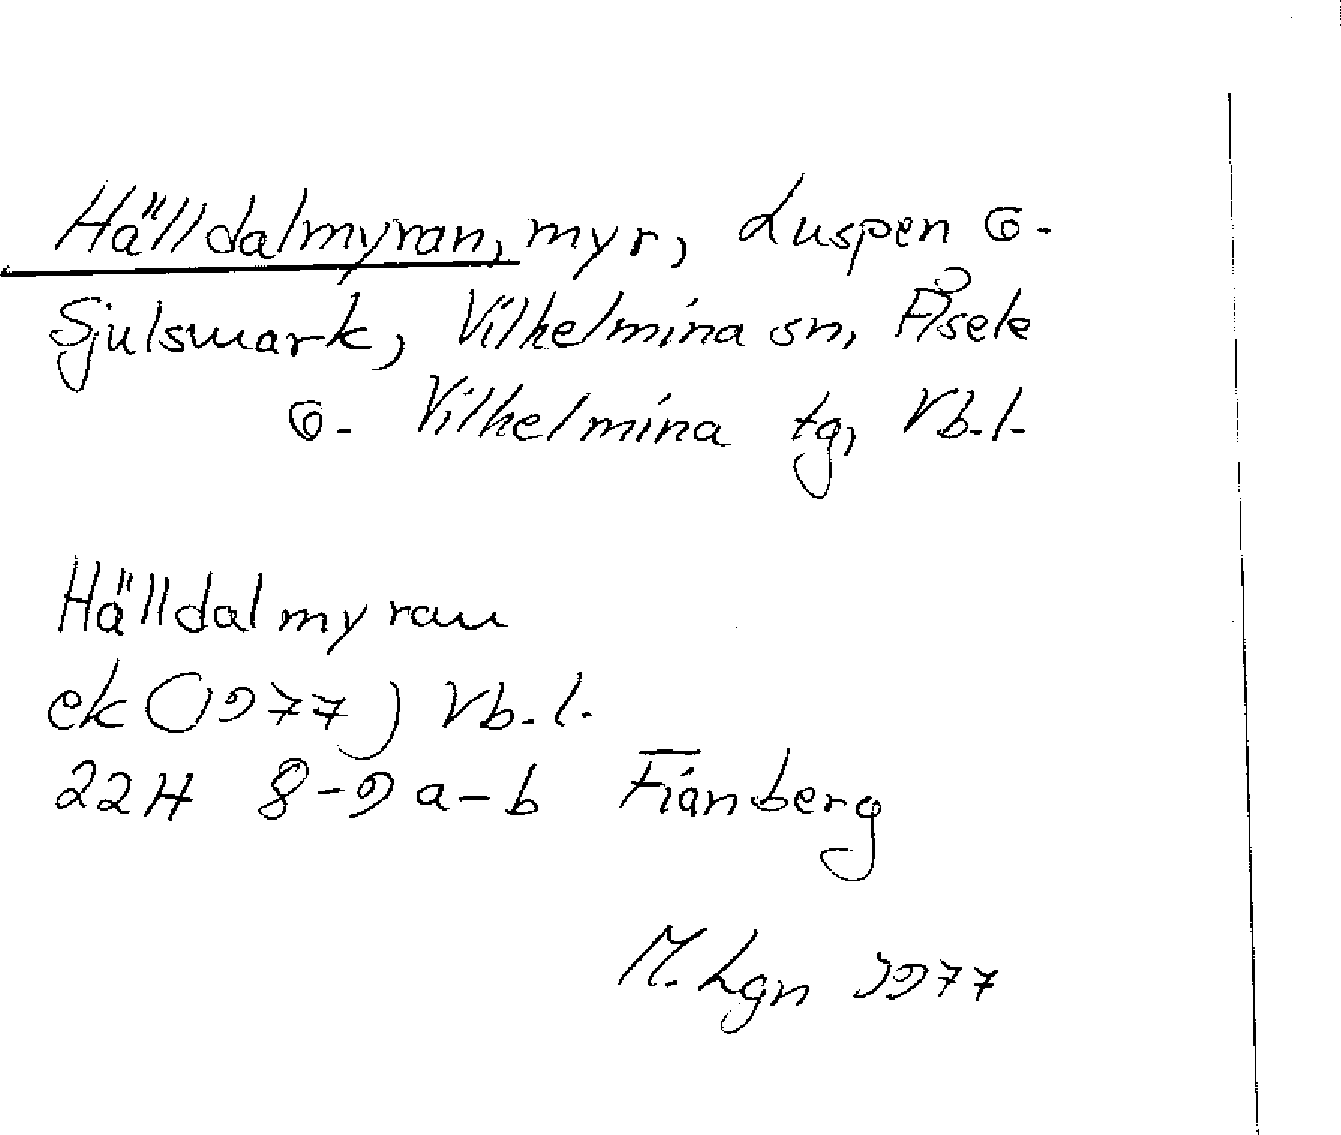 Hälldalmyran, myr, Luspen o.
Sjulsmark, Vilhelmina sn, Åsele
o. Vilhelmina tg, Vb.l.
Hälldalmyran
ek (1977) Vb.l.
22H 8-9 a-b Fiånberg
M. Lgn 1977